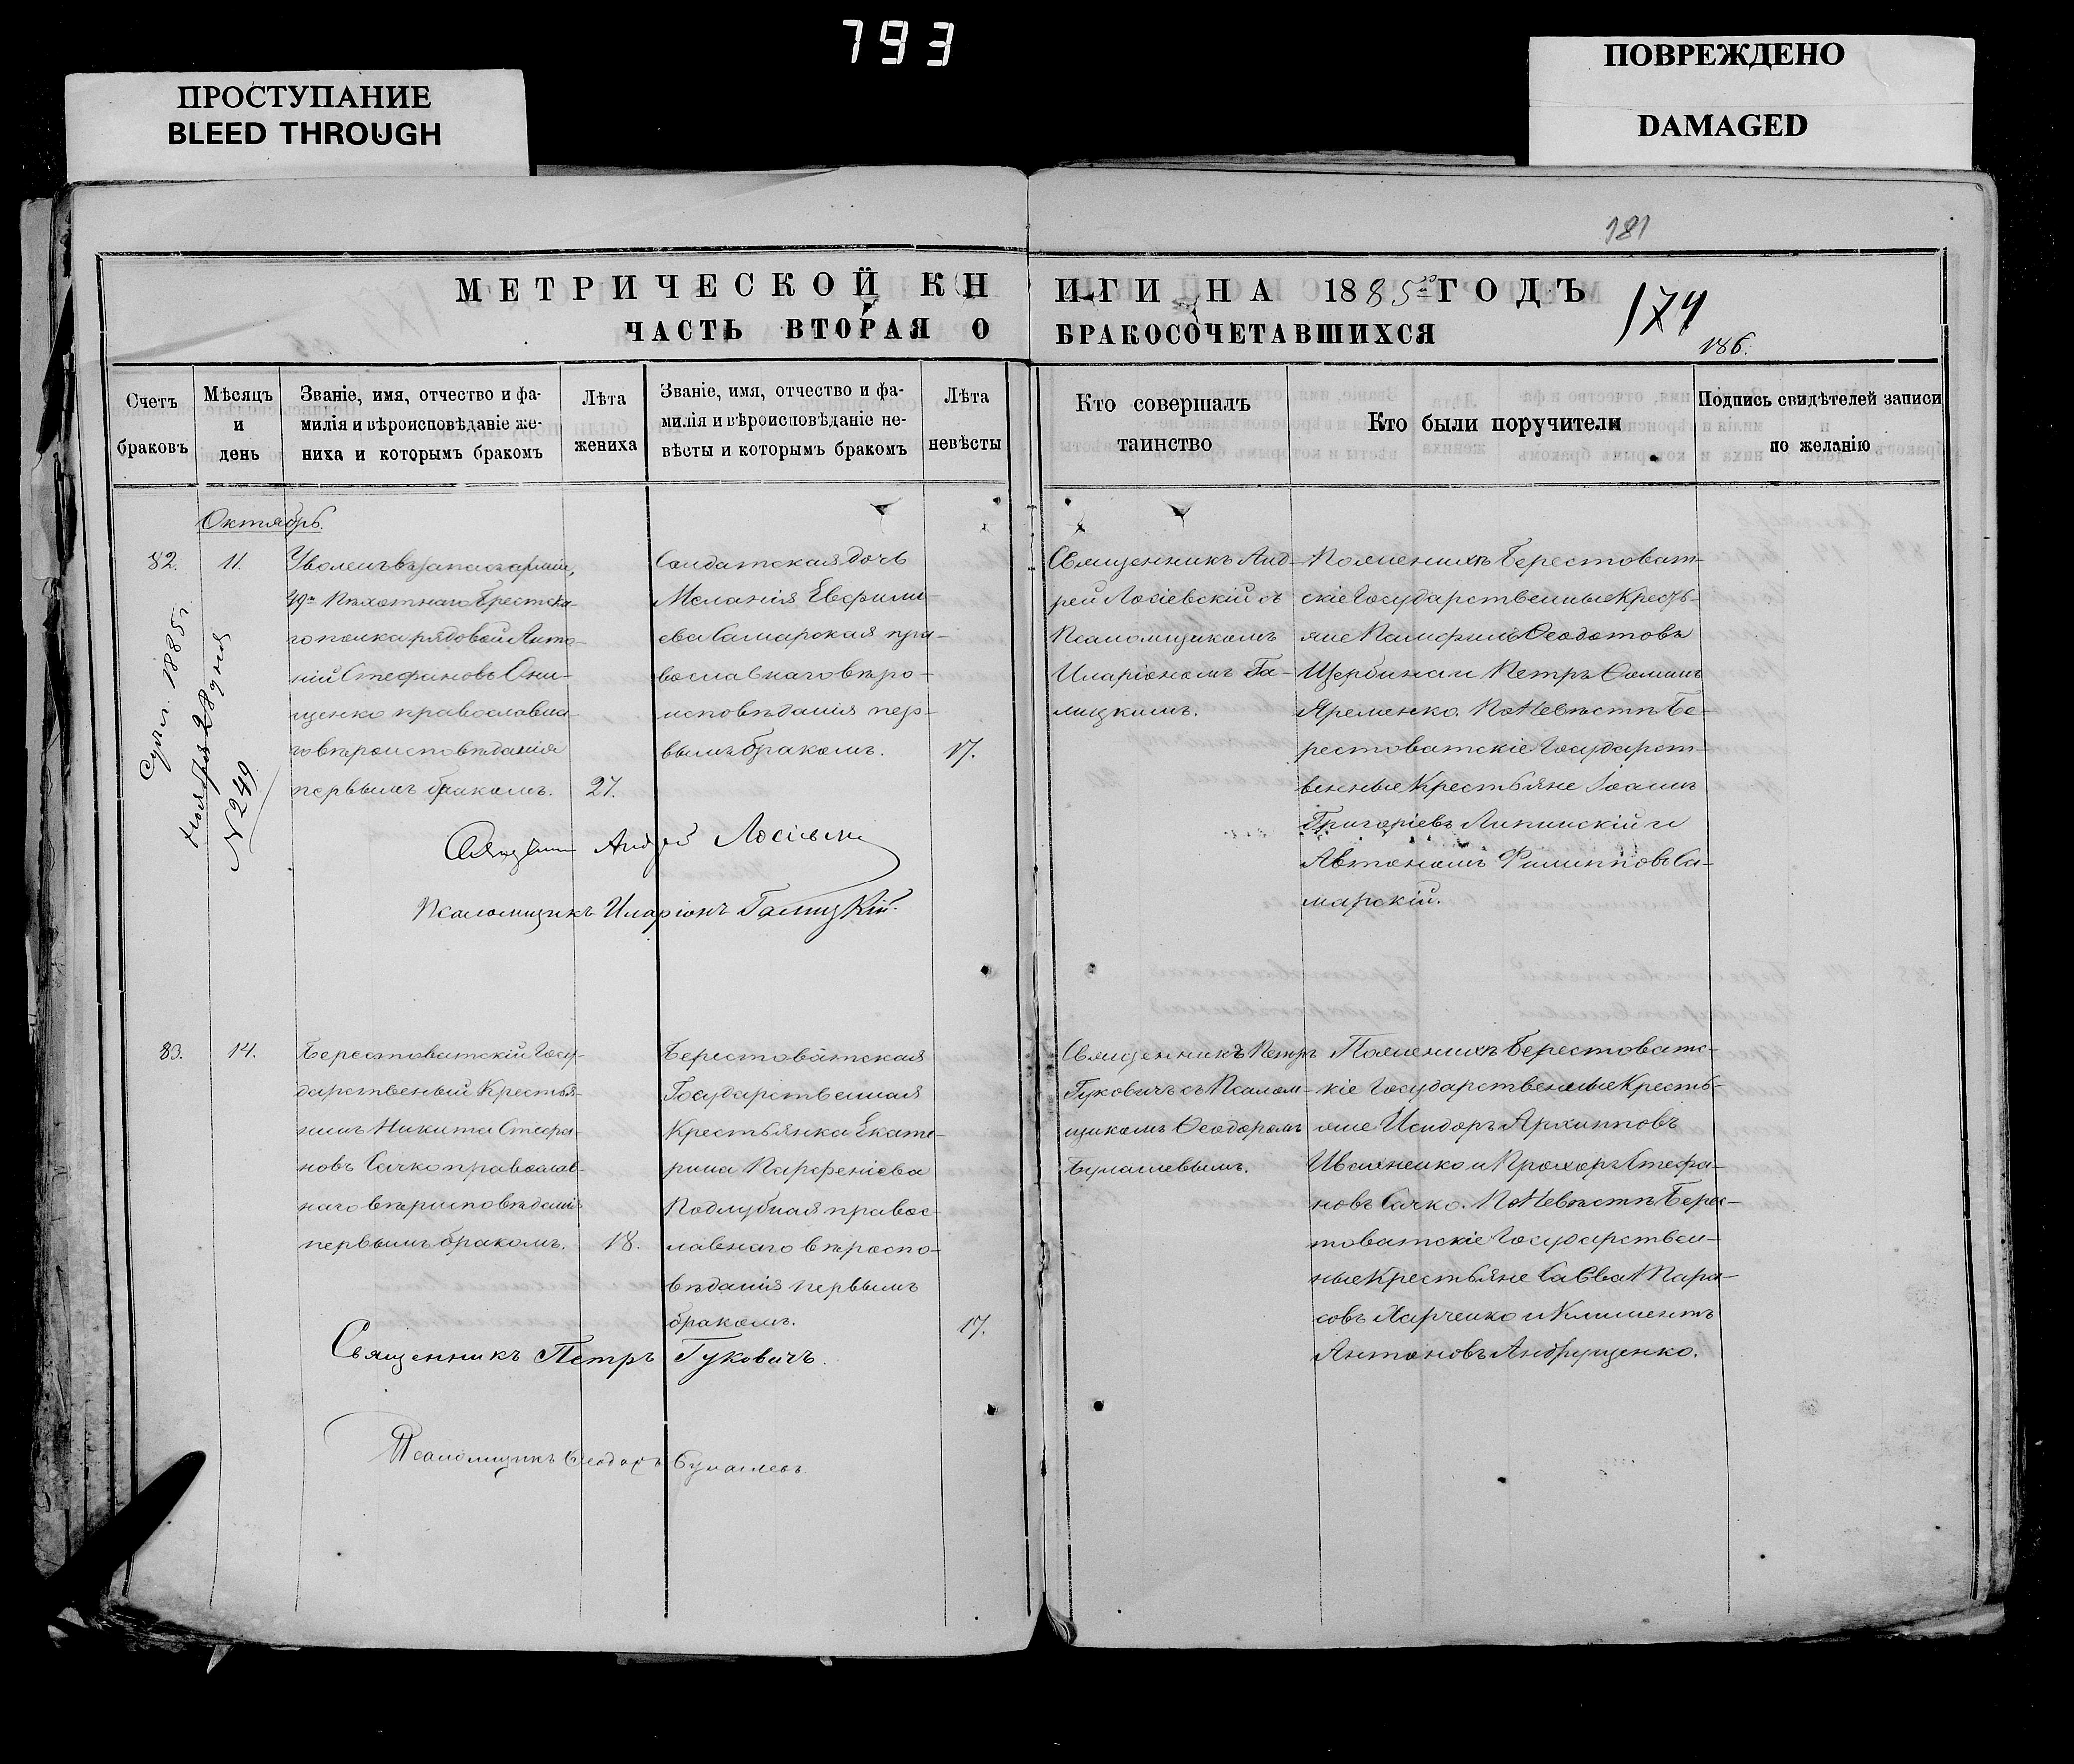 793
ПРОСТУПАНИЕ
BLEED THROUGH
ПОВРЕЖДЕНО
DAMAGED
181
МЕТРИЧЕСКОЙ КНИГИ НА 1885 ГОДЪ
174
ЧАСТЬ ВТОРАЯ О БРАКОСОЧЕТАВШИХСЯ
186.
Счетъ
браковъ
Мѣсяцъ
и
день
Званіе, имя, отчество и фа-
милія и вѣроисповѣданіе же-
ниха и которымъ бракомъ
Лѣта
жениха
Званіе, имя, отчество и фа-
милія и вѣроисповѣданіе не-
вѣсты и которымъ бракомъ
Лѣта
невѣсты
Кто совершалъ
таинство
Кто были поручители
Подпись свидѣтелей записи
по желанію
Октябрь.
82.
11.
1885
Ноября 28 дня
N 249
Уволенъ въ запасъ арміи,
49го Пѣхотнаго Брестска-
го полка рядовой Анто-
ній Стефановъ Они-
щенко православна-
го вѣроисповѣданія
первымъ бракомъ.
27.
Солдатская дочь
Меланія Евфимі-
ева Самарская пра-
вославнаго вѣро-
исповѣданія пер-
вымъ бракомъ.
17.
Священникъ Анд-
рей Лосіевскій съ
Псаломщикомъ
Иларіономъ Га-
лицкимъ.
По женихѣ Берестоват-
скіе Государственные Кресть-
яне Памфилъ Ѳеодотовъ
Щербина и Петръ Ѳоминъ
Яременко. По Невѣстѣ Бе-
рестоватскіе Государст-
венные Крестьяне Іоаннъ
Григоріевъ Липинскій и
Автономъ Филипповъ Са-
марскій.
Андрей
Псаломщикъ Иларіонъ Галицкій.
83.
14.
Берестоватскій Госу-
дарственый Крестья-
нинъ Никита Стефа-
новъ Сачко православ-
наго вѣрисповѣданія
первымъ бракомъ.
18.
Берестоватская
Государственная
Крестьянка Екате-
рина Парфеніева
Подлубная правос-
лавнаго вѣроспо-
вѣданія первымъ
бракомъ.
17.
Священникъ Петръ
Гуковичъ съ Псалом-
щикомъ Ѳеодоромъ
Булашевымъ.
По женихѣ Берестоватс-
кіе Государственные Кресть-
яне Исидоръ Архипповъ
Иваненко и Прохоръ Стефа-
новъ Сачко. По Невѣстѣ Берес-
товатскіе Государствен-
ные Крестьяне Савва Тара-
совъ Харченко и Климентъ
Антоновъ Андрущенко.
Священникъ Петръ Гуковичъ.
Псаломщикъ Ѳеодоръ Булашевъ.